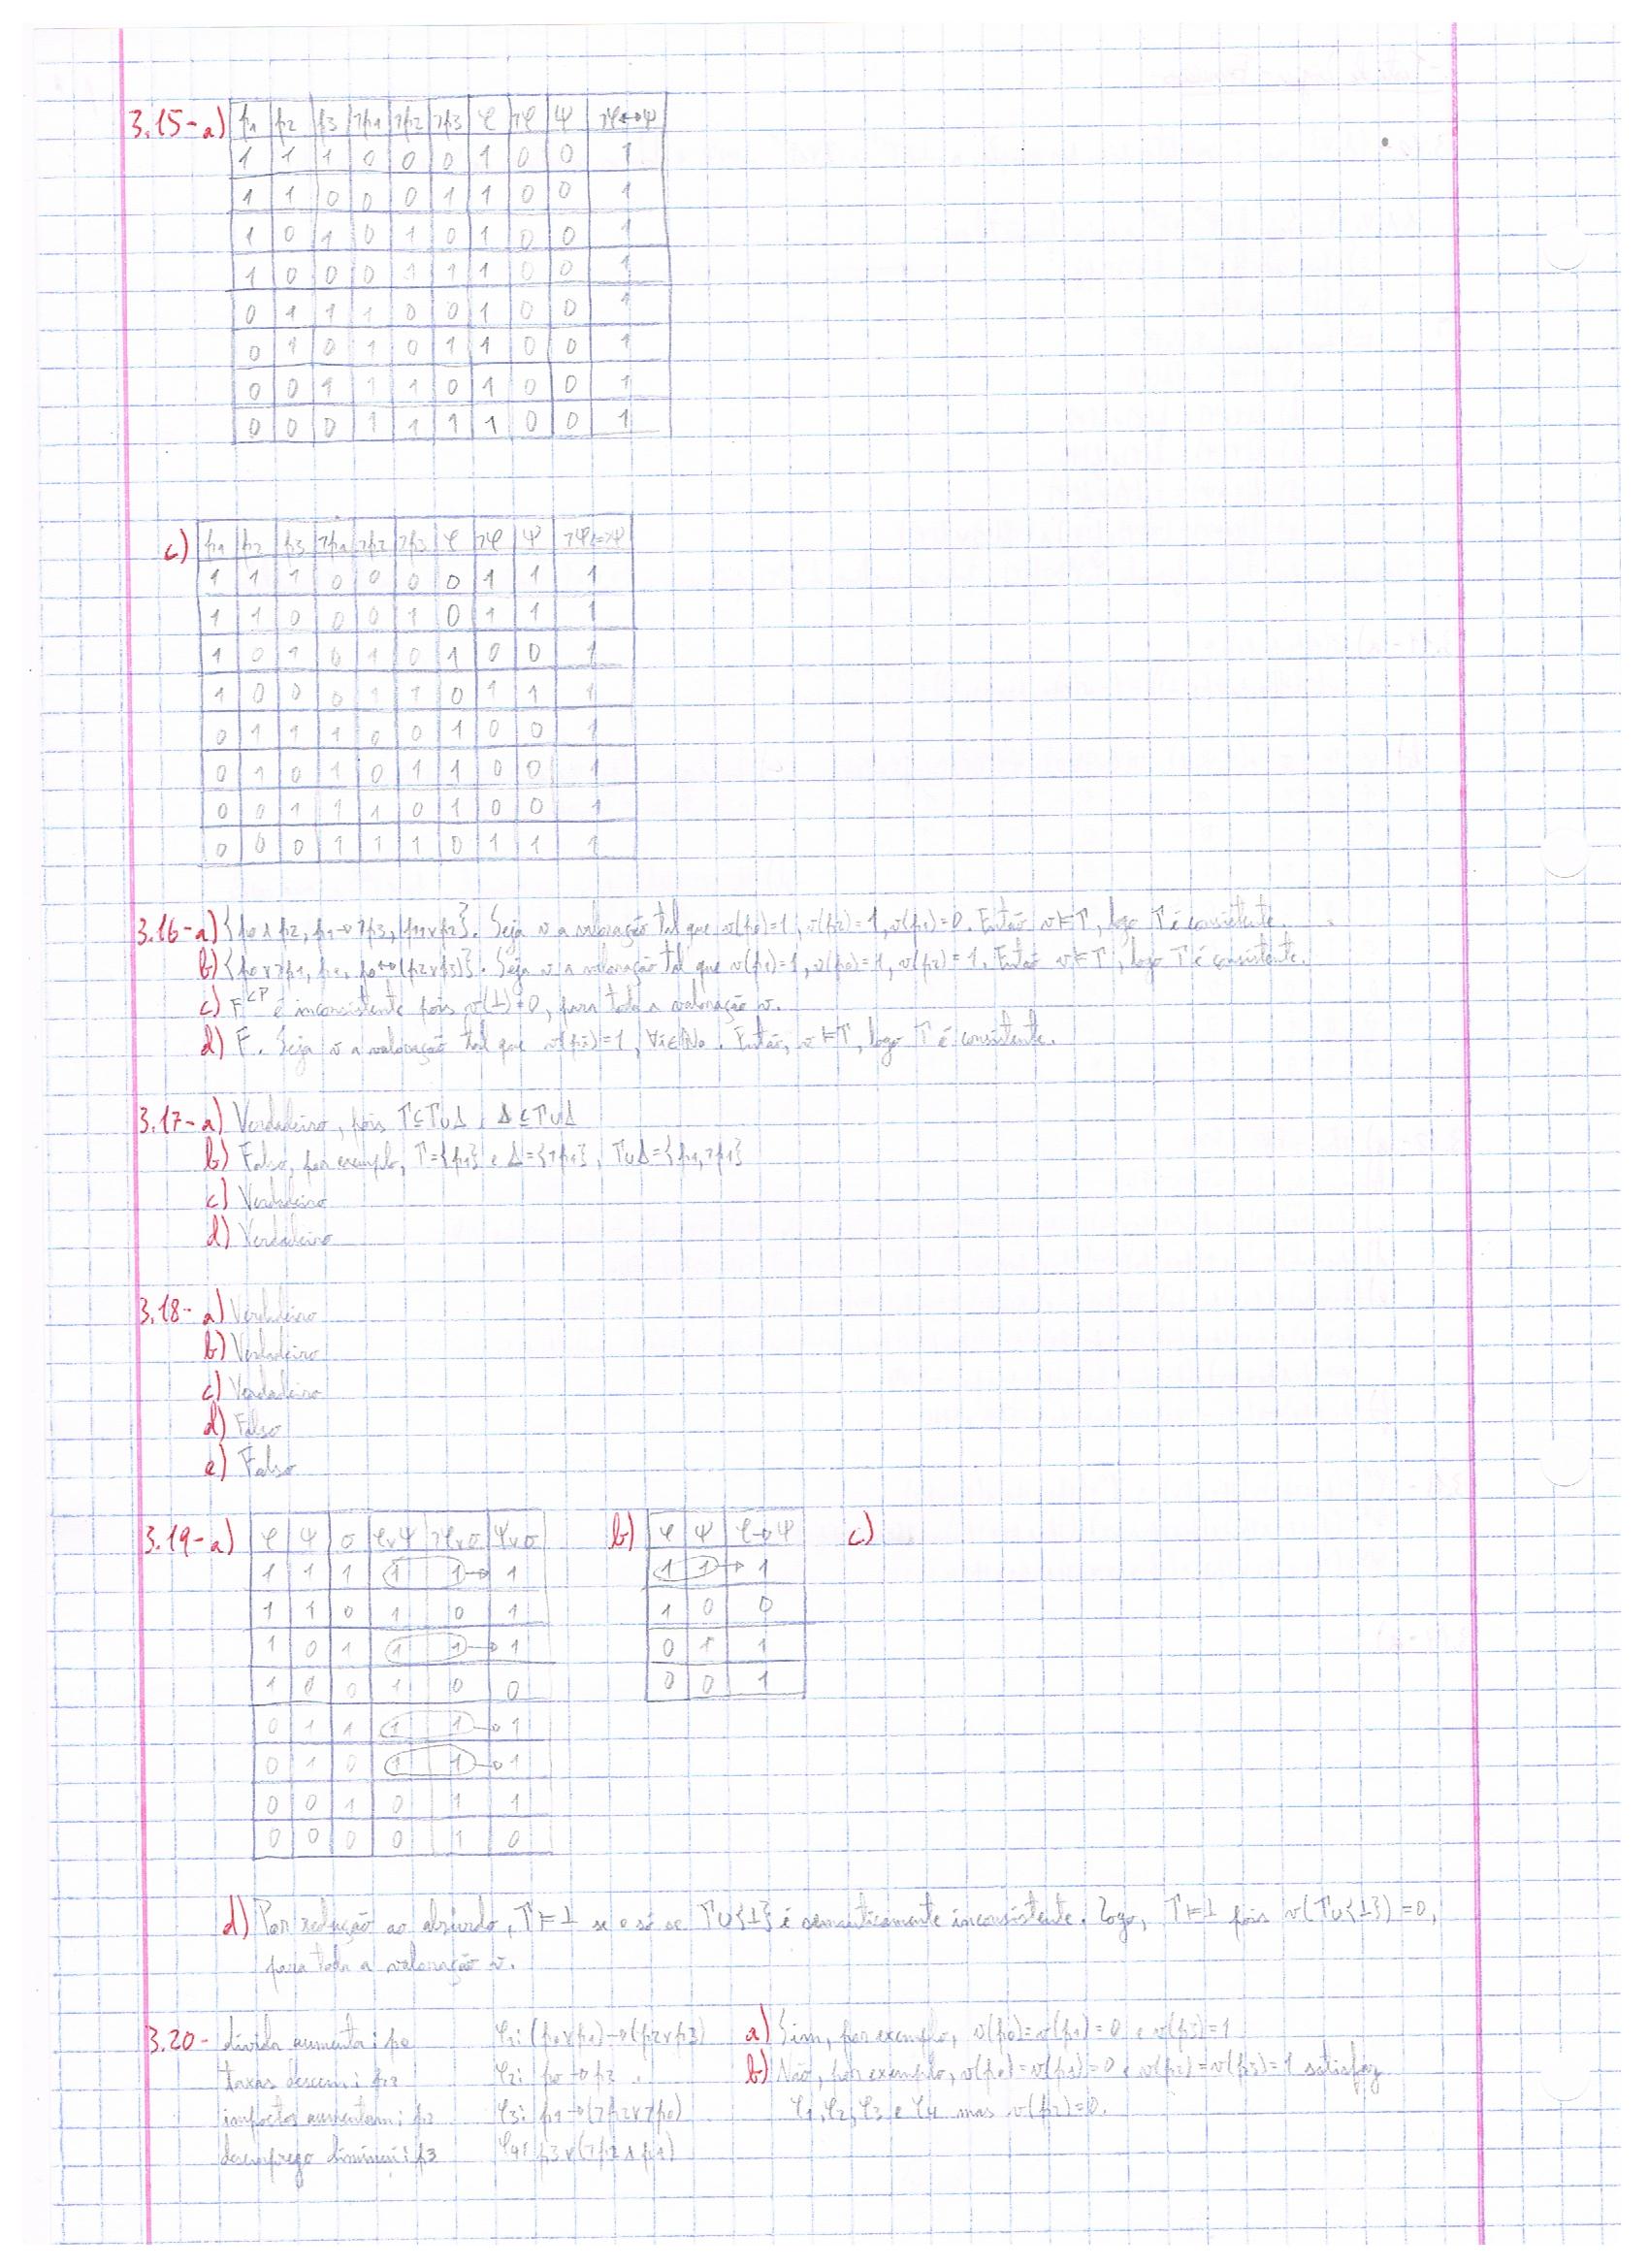 3.15-a) p1 p2 p3 ¬p1 ¬p2 ¬p3 φ ¬φ ψ ¬φ↔ψ
1 1 1 0 0 0 1 0 0 1
1 1 0 0 0 1 1 0 0 1
1 0 1 0 1 0 1 0 0 1
1 0 0 0 1 1 1 0 0 1
0 1 1 1 0 0 1 0 0 1
0 1 0 1 0 1 1 0 0 1
0 0 1 1 1 0 1 0 0 1
0 0 0 1 1 1 1 0 0 1
c) p1 p2 p3 ¬p1 ¬p2 ¬p3 φ ¬φ ψ
1 1 1 0 0 0 0 1 1 1
1 1 0 0 0 1 0 1 1 1
1 0 1 0 1 0 1 0 0 1
1 0 0 0 1 1 0 1 1 1
0 1 1 1 0 0 1 0 0 1
0 1 0 1 0 1 1 0 0 1
0 0 1 1 1 0 1 0 0 1
0 0 0 1 1 1 0 1 1 1
3.16-a) {p0∧p2, p1→¬p3, p1∨p2}. Seja v a valoração tal que v(p0)=1, v(p2)=1, v(p1)=0. Então v⊨Γ, logo Γ é consistente.
b) {p0∨¬p1, p1, p0↔(p2∨p3)}. Seja v a valoração tal que v(p1)=1, v(p0)=1, v(p2)=1. Então v⊨Γ, logo Γ é consistente.
c) F^CP é inconsistente pois v(⊥)=0, para toda a valoração v.
d) F. Seja v a valoração tal que v(pi)=1, ∀i∈ℕ0. Então, v⊨Γ, logo Γ é consistente.
3.17-a) Verdadeiro, pois Γ⊆Γ∪Δ, Δ⊆Γ∪Δ
b) Falso, por exemplo, Γ={p1} e Δ={¬p1}, Γ∪Δ={p1,¬p1}
c) Verdadeiro
d) Verdadeiro
3.18-a) Verdadeiro
b) Verdadeiro
c) Verdadeiro
d) Falso
e) Falso
3.19-a) φ ψ σ φ∨ψ ¬φ∨σ ψ∨σ
1 1 1 1 1→1
1 1 0 1 0 1
1 0 1 1 1→1
1 0 0 1 0 0
0 1 1 1 1→1
0 1 0 1 1→1
0 0 1 0 1 1
0 0 0 0 1 0
b) φ ψ φ→ψ
1 1→1
1 0 0
0 1 1
0 0 1
c)
d) Por redução ao absurdo, Γ⊨⊥ se e só se Γ∪{⊥} é semanticamente inconsistente. Logo, Γ⊨⊥ pois v(Γ∪{⊥})=0,
para toda a valoração v.
3.20- dívida aumenta: p0 φ1: (p0∨p1)→(p2∨p3) a) Sim, por exemplo, v(p0)=v(p1)=0 e v(p3)=1
taxas descem: p1 φ2: p0→p2 b) Não, por exemplo, v(p0)=v(p1)=0 e v(p2)=v(p3)=1 satisfaz
impostos aumentam: p2 φ3: p1→(¬p2∨¬p0) φ1, φ2, φ3 e φ4 mas v(p2)=0.
desemprego diminui: p3 φ4: p3∨(¬p2∧p1)